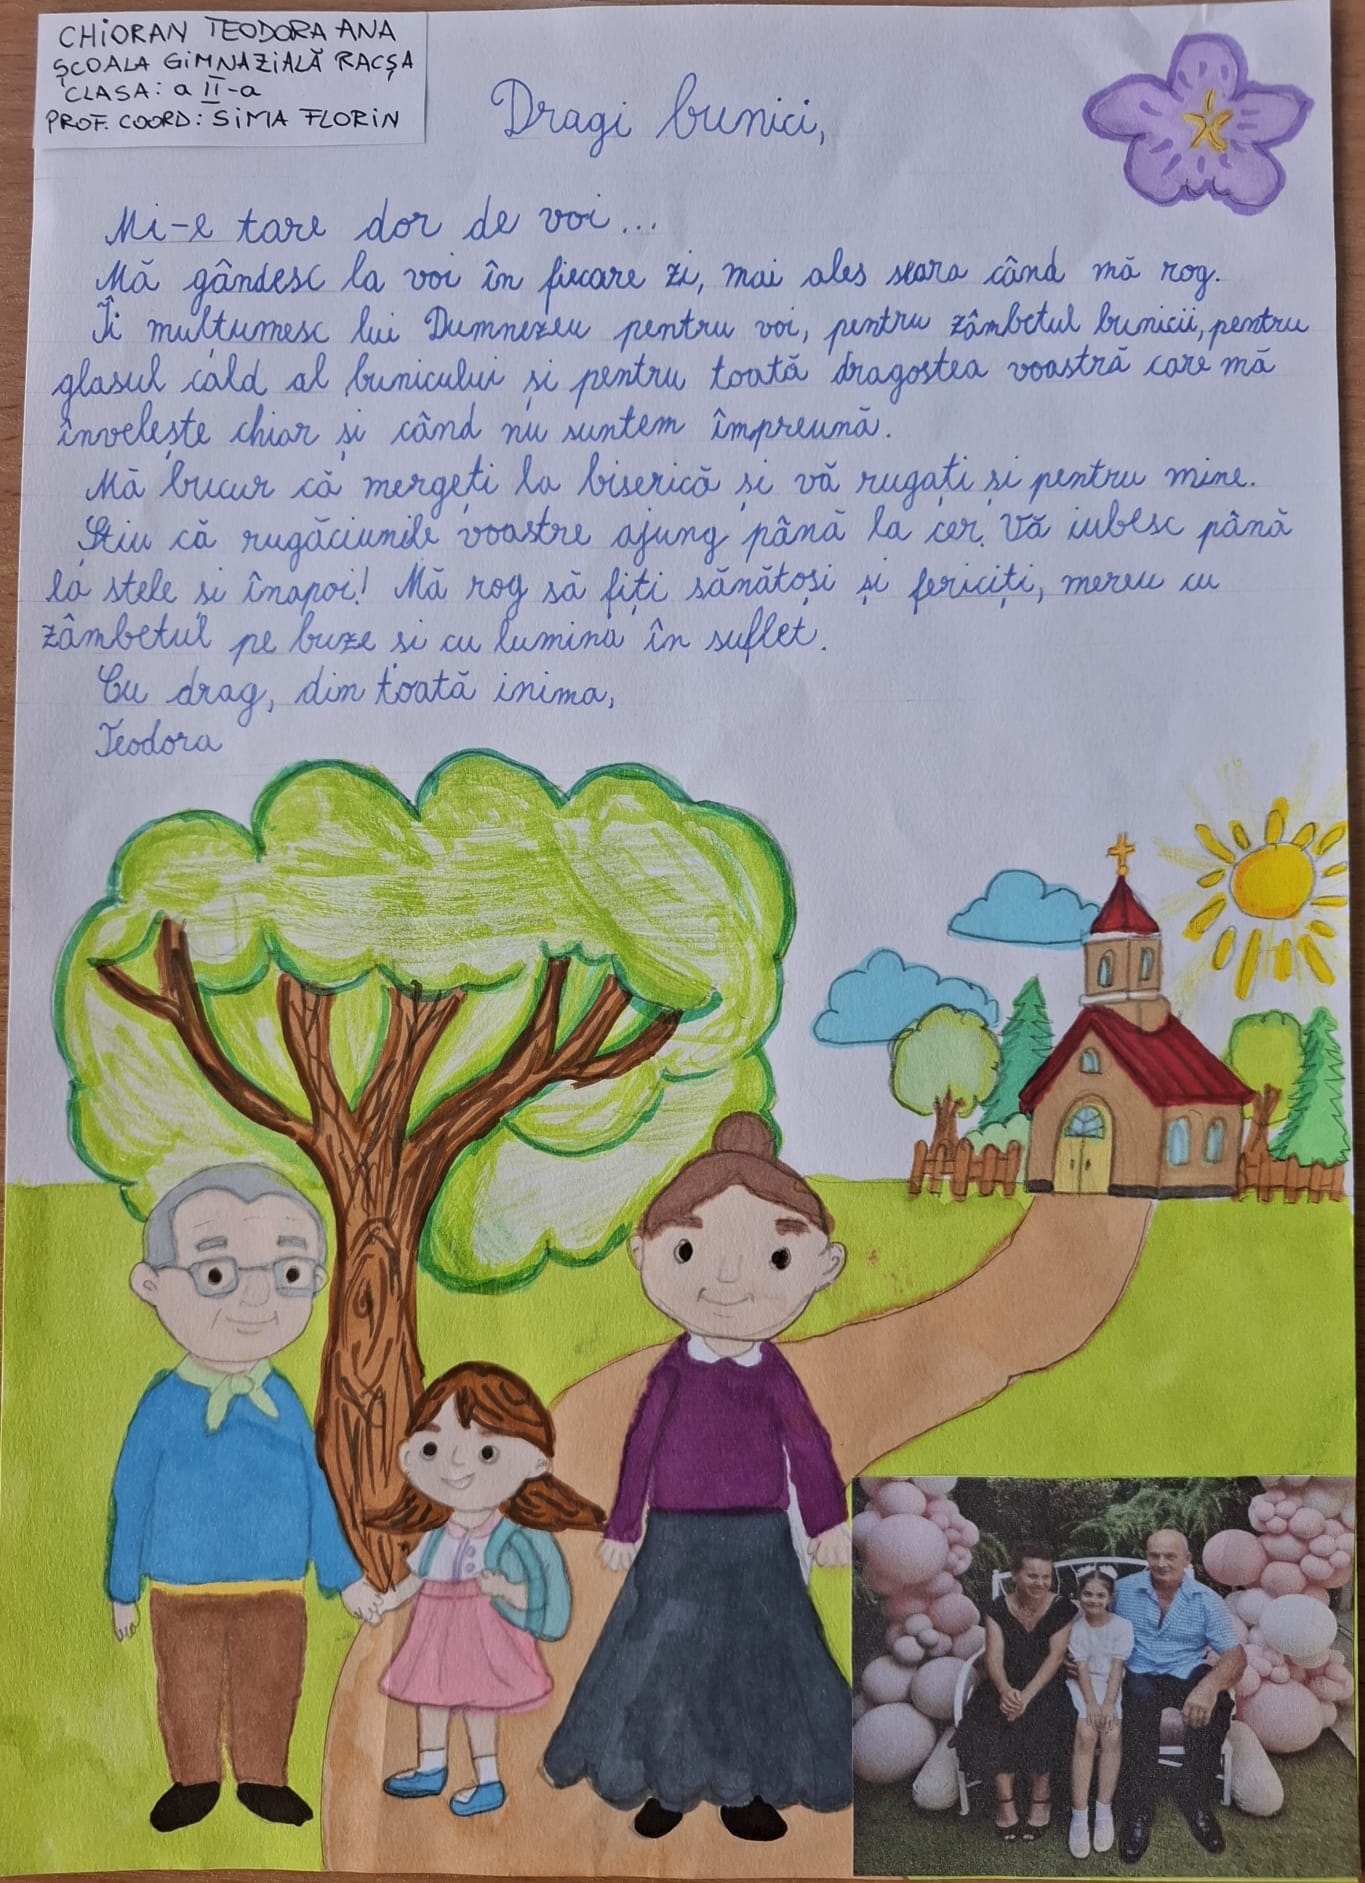 CHIORAN TEODORA ANA
ȘCOALA GIMNAZIALĂ RACȘA
CLASA: a II-a
PROF. COORD: SIMA FLORIN
Dragi bunici,
Mi-e tare dor de voi...
Mă gândesc la voi în fiecare zi, mai ales seara când mă rog.
Îi mulțumesc lui Dumnezeu pentru voi, pentru zâmbetul bunicii, pentru
glasul cald al bunicului și pentru toată dragostea voastră care mă
învelește chiar și când nu suntem împreună.
Mă bucur că mergeți la biserică și vă rugați și pentru mine.
Știu că rugăciunile voastre ajung până la cer. Vă iubesc până
la stele si înapoi! Mă rog să fiți sănătoși și fericiți, mereu cu
zâmbetul pe buze si cu lumina în suflet.
Cu drag, din toată inima,
Teodora